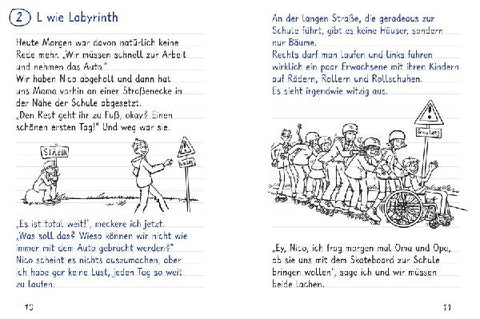 2 L wie Labyrinth
Heute Morgen war davon natürlich keine
Rede mehr. „Wir müssen schnell zur Arbeit
und nehmen das Auto.“
Wir haben Nico abgeholt und dann hat
uns Mama vorhin an einer Straßenecke in
der Nähe der Schule abgesetzt.
„Den Rest geht ihr zu Fuß, okay? Einen
schönen ersten Tag!“ Und weg war sie.
„Es ist total weit!“, meckere ich jetzt.
„Was soll das? Wieso können wir nicht wie
immer mit dem Auto gebracht werden?“
Nico scheint es nichts auszumachen, aber
ich habe gar keine Lust, jeden Tag so weit
zu laufen.
10
An der langen Straße, die geradeaus zur
Schule führt, gibt es keine Häuser, sondern
nur Bäume.
Rechts darf man laufen und links fahren
wirklich ein paar Erwachsene mit ihren Kindern
auf Rädern, Rollern und Rollschuhen.
Es sieht irgendwie witzig aus.
„Ey, Nico, ich frag morgen mal Oma und Opa,
ob sie uns mit dem Skateboard zur Schule
bringen wollen“, sage ich und wir müssen
beide lachen.
11